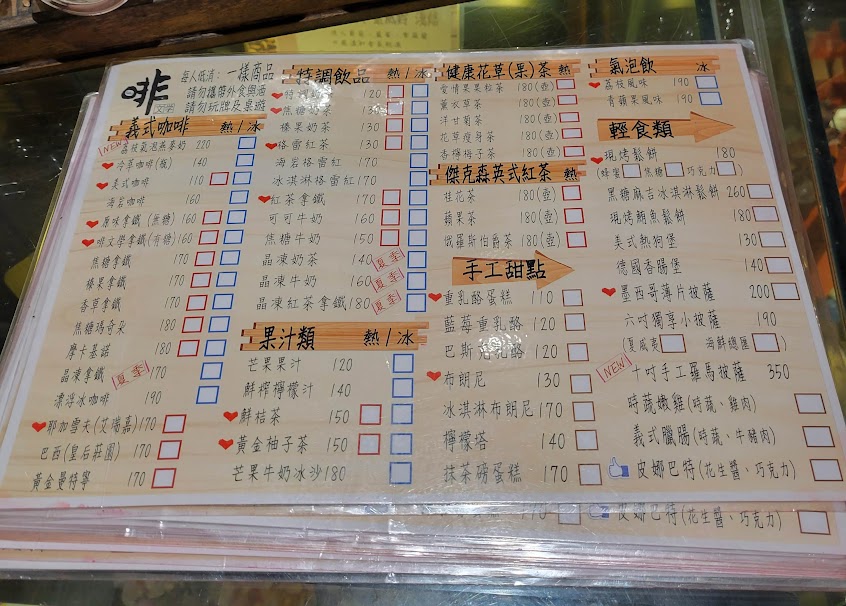 啡
文學
每人低消：一樣商品
請勿攜帶外食與酒
請勿玩牌及桌遊
義式咖啡 熱/冰
NEW 荔枝氣泡燕麥奶 220
冷萃咖啡(瓶) 140
美式咖啡 110
海岩咖啡 160
原味拿鐵(無糖) 160
啡文學拿鐵(有糖) 160
焦糖拿鐵 170
榛果拿鐵 170
香草拿鐵 170
焦糖瑪奇朵 180
摩卡基諾 180
晶凍拿鐵 夏季 170
漂浮冰咖啡 190
耶加雪夫(艾瑞嘉) 170
巴西(皇后莊園) 170
黃金曼特寧 170
特調飲品 熱/冰
特調奶茶 120
焦糖奶茶 130
榛果奶茶 130
格雷紅茶 130
海岩格雷紅 170
冰淇淋格雷紅 170
紅茶拿鐵 170
可可牛奶 160
焦糖牛奶 150
晶凍奶茶 140 夏季
晶凍牛奶 160 夏季
晶凍紅茶拿鐵 180 夏季
果汁類 熱/冰
芒果果汁 120
鮮榨檸檬汁 140
鮮桔茶 150
黃金柚子茶 150
芒果牛奶冰沙 180
健康花草(果)茶 熱
愛情果果粒茶 180(壺)
薰衣草茶 180(壺)
洋甘菊茶 180(壺)
花草瘦身茶 180(壺)
香檸梅子茶 180(壺)
傑克森英式紅茶 熱
桂花茶 180(壺)
蘋果茶 180(壺)
俄羅斯伯爵茶 180(壺)
手工甜點
重乳酪蛋糕 110
藍莓重乳酪 120
巴斯克乳酪 120
布朗尼 130
冰淇淋布朗尼 170
檸檬塔 140
抹茶磅蛋糕 170
氣泡飲 冰
荔枝風味 190
青蘋果風味 190
輕食類
現烤鬆餅 180
(蜂蜜 焦糖 巧克力)
黑糖麻吉冰淇淋鬆餅 260
現烤鮪魚鬆餅 180
美式熱狗堡 130
德國香腸堡 140
墨西哥薄片披薩 200
六吋獨享小披薩 190
(夏威夷 海鮮總匯)
NEW 十吋手工羅馬披薩 350
時蔬嫩雞(時蔬、雞肉)
義式臘腸(時蔬、牛豬肉)
皮娜巴特(花生醬、巧克力)
170
皮娜巴特(花生醬、巧克力)